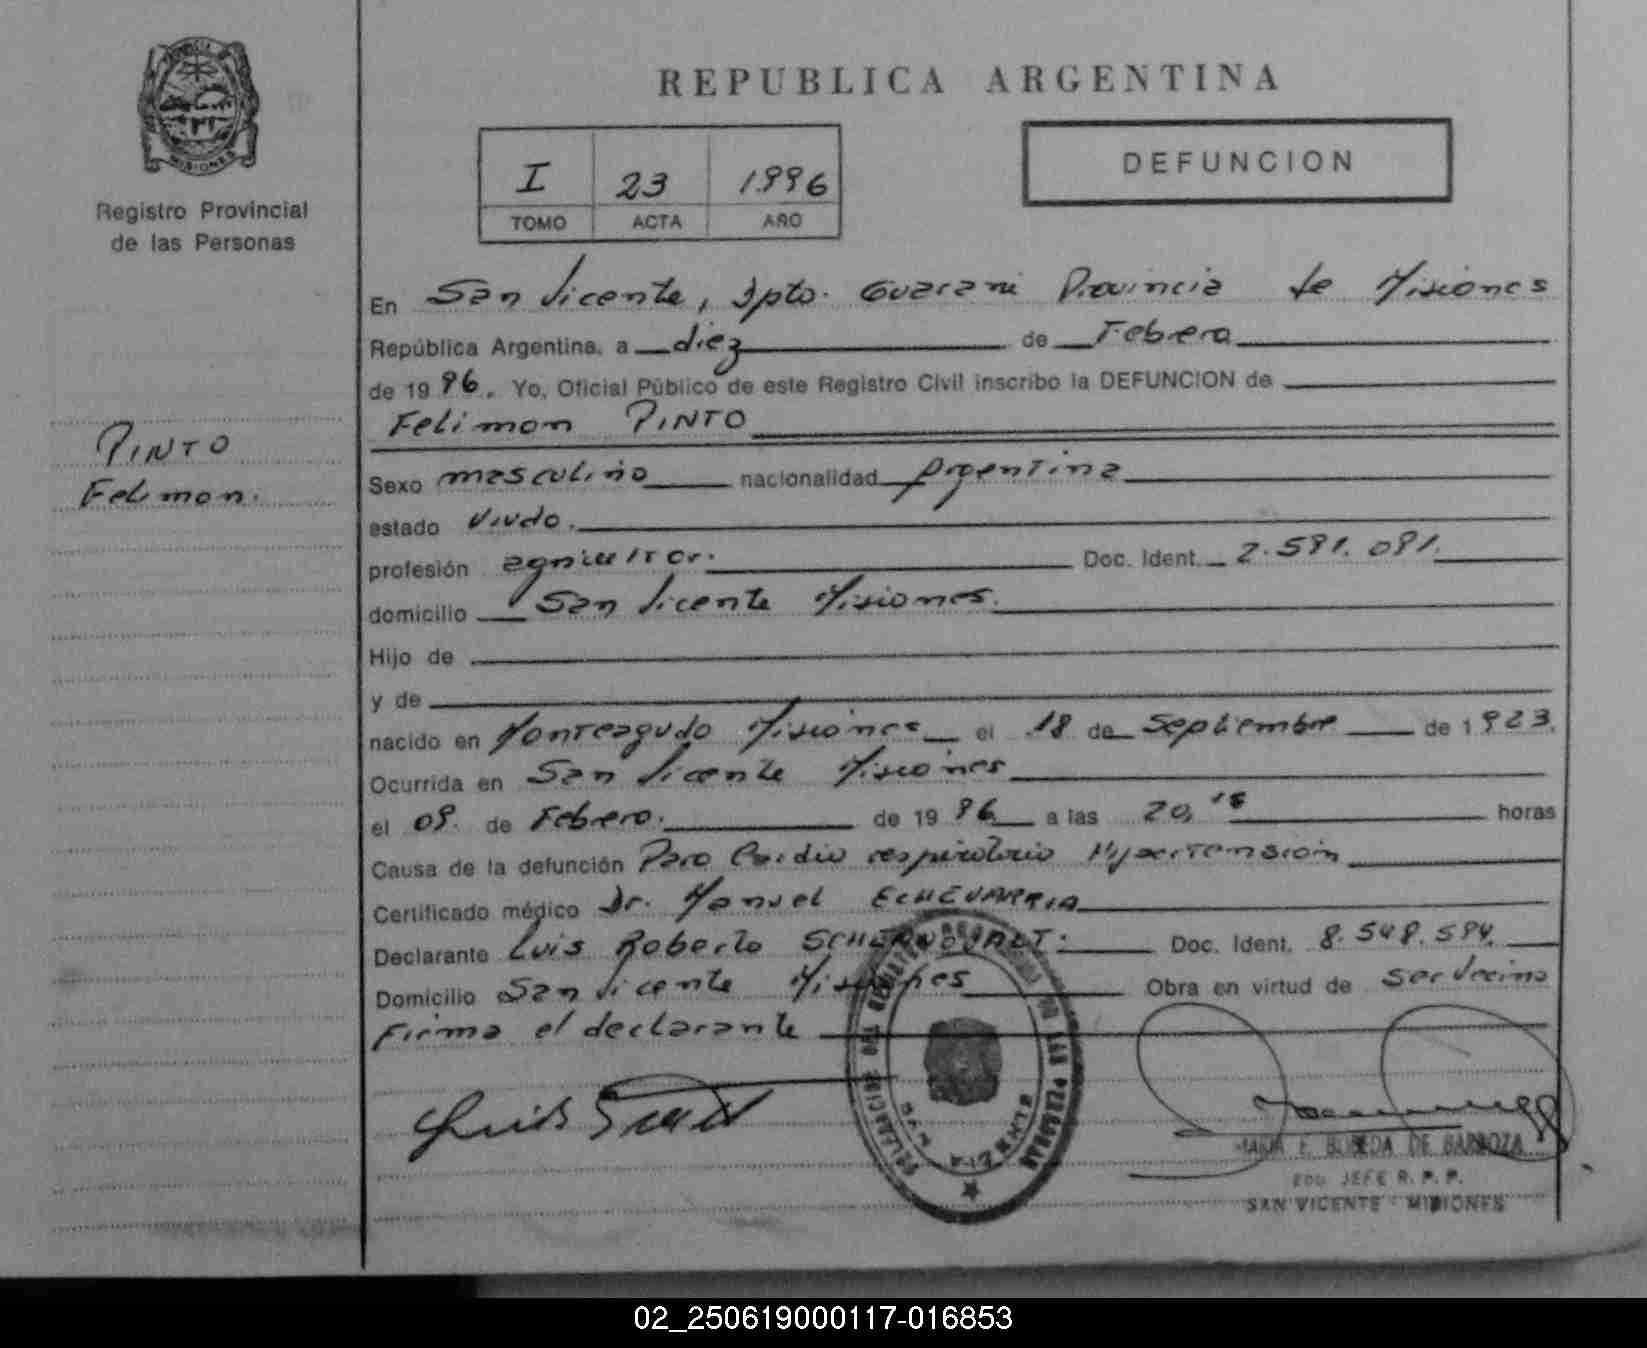 MISIONES
Registro Provincial
de las Personas
PINTO
Felimon.
REPUBLICA ARGENTINA
I 23 1996
TOMO ACTA AÑO
DEFUNCION
En San Vicente, Dpto. Guarani Provincia de Misiones
República Argentina, a diez de Febrero
de 1996. Yo, Oficial Público de este Registro Civil inscribo la DEFUNCION de
Felimon PINTO
Sexo masculino nacionalidad Argentina
estado Viudo.
profesión agricultor. Doc. Ident. 2.591.091.
domicilio San Vicente Misiones.
Hijo de
y de
nacido en Monteagudo Misiones el 18 de Septiembre de 1923.
Ocurrida en San Vicente Misiones
el 09. de Febrero. de 1996 a las 20,15 horas
Causa de la defunción Paro Cardio respiratorio Hipertensión
Certificado médico Dr. Manuel ECHEVARRIA
Declarante Luis Roberto Doc. Ident. 8.548.594.
Domicilio San Vicente Misiones Obra en virtud de ser Vecino
Firma el declarante
DE LAS PERSONAS
SAN VICENTE
MARIA E. BOBEDA DE BARBOZA
JEFE R. P. P.
SAN VICENTE - MISIONES
02_250619000117-016853